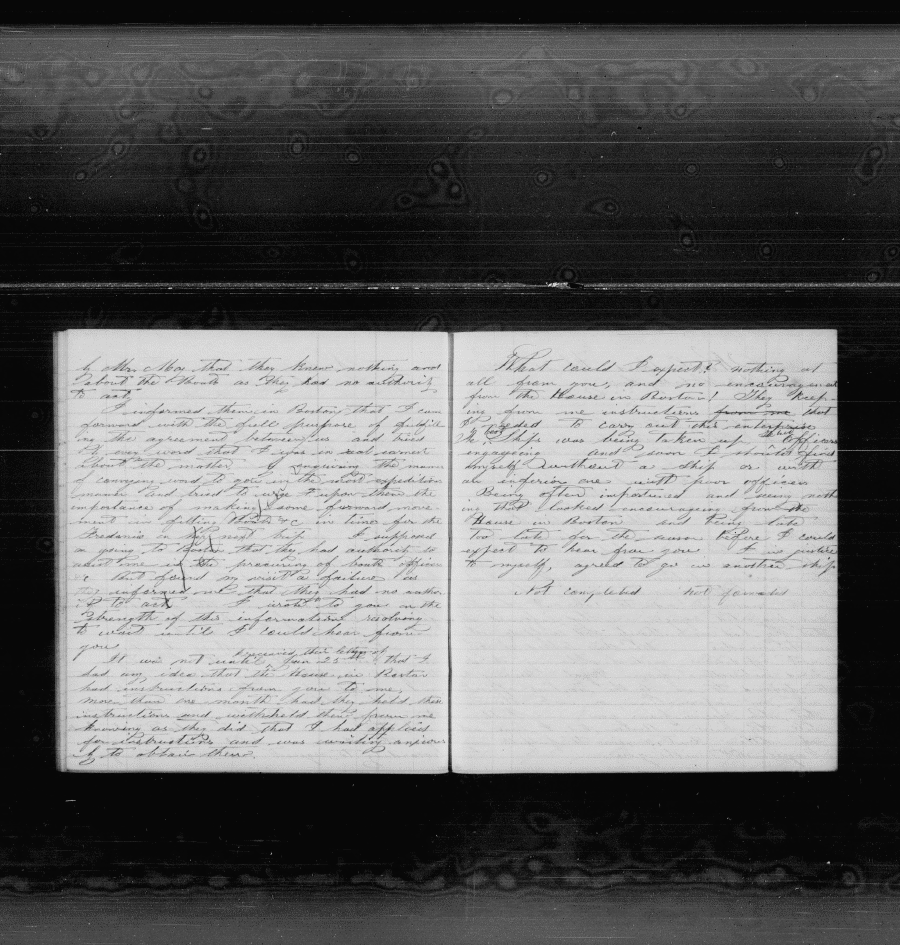 by Mr. May that they knew nothing and
about the boats as they had no authority
to act
I informed them in Boston that I came
forward with the full purpose of fulfill
ing the agreement between us and tried
every word that I was in real earnest
about the matter of procuring the means
of conveying and to go in the next expedition
manner and tried to urge upon them the
importance of making some forward move
ment in getting Boats &c in time for the
Fredonia in her next trip I supposed
in going to Boston that they had authority to
assist me in the procuring of boats officers
&c but found my visit a failure as
they informed me that they had no author
ity to act I wrote to you on the
strength of this information resolving
to wait until I could hear from
you
received their letter of
It was not until Jan 25 that I
had any idea that the House in Boston
had instructions from you to me
more than one month had they held these
instructions and withheld them from me
knowing as they did that I had applied
for instructions and was waiting anxious
ly to obtain them.
What could I expect? nothing at
all from you, and no encouragement
from the House in Boston! They keep
ing from me instructions from me that
I needed to carry out this enterprise
The best Ships was being taken up officers
engaging and soon I should find
myself without a ship or with
an inferior one with poor officers
Being often importuned and seeing noth
ing that looked encouraging from the
House in Boston and being late
too late for the season before I could
expect to hear from you I in justice
to myself, agreed to go in another ship
Not completed not forwarded